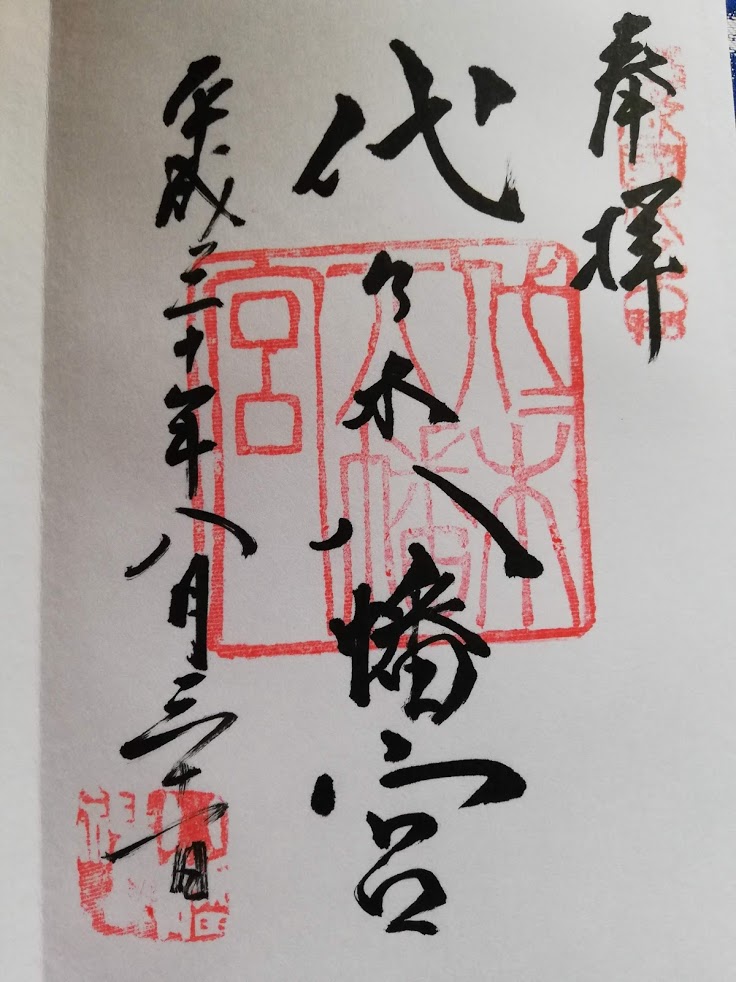 奉拝
代々木八幡宮
平成三十年八月三十一日
代々木
八幡
宮